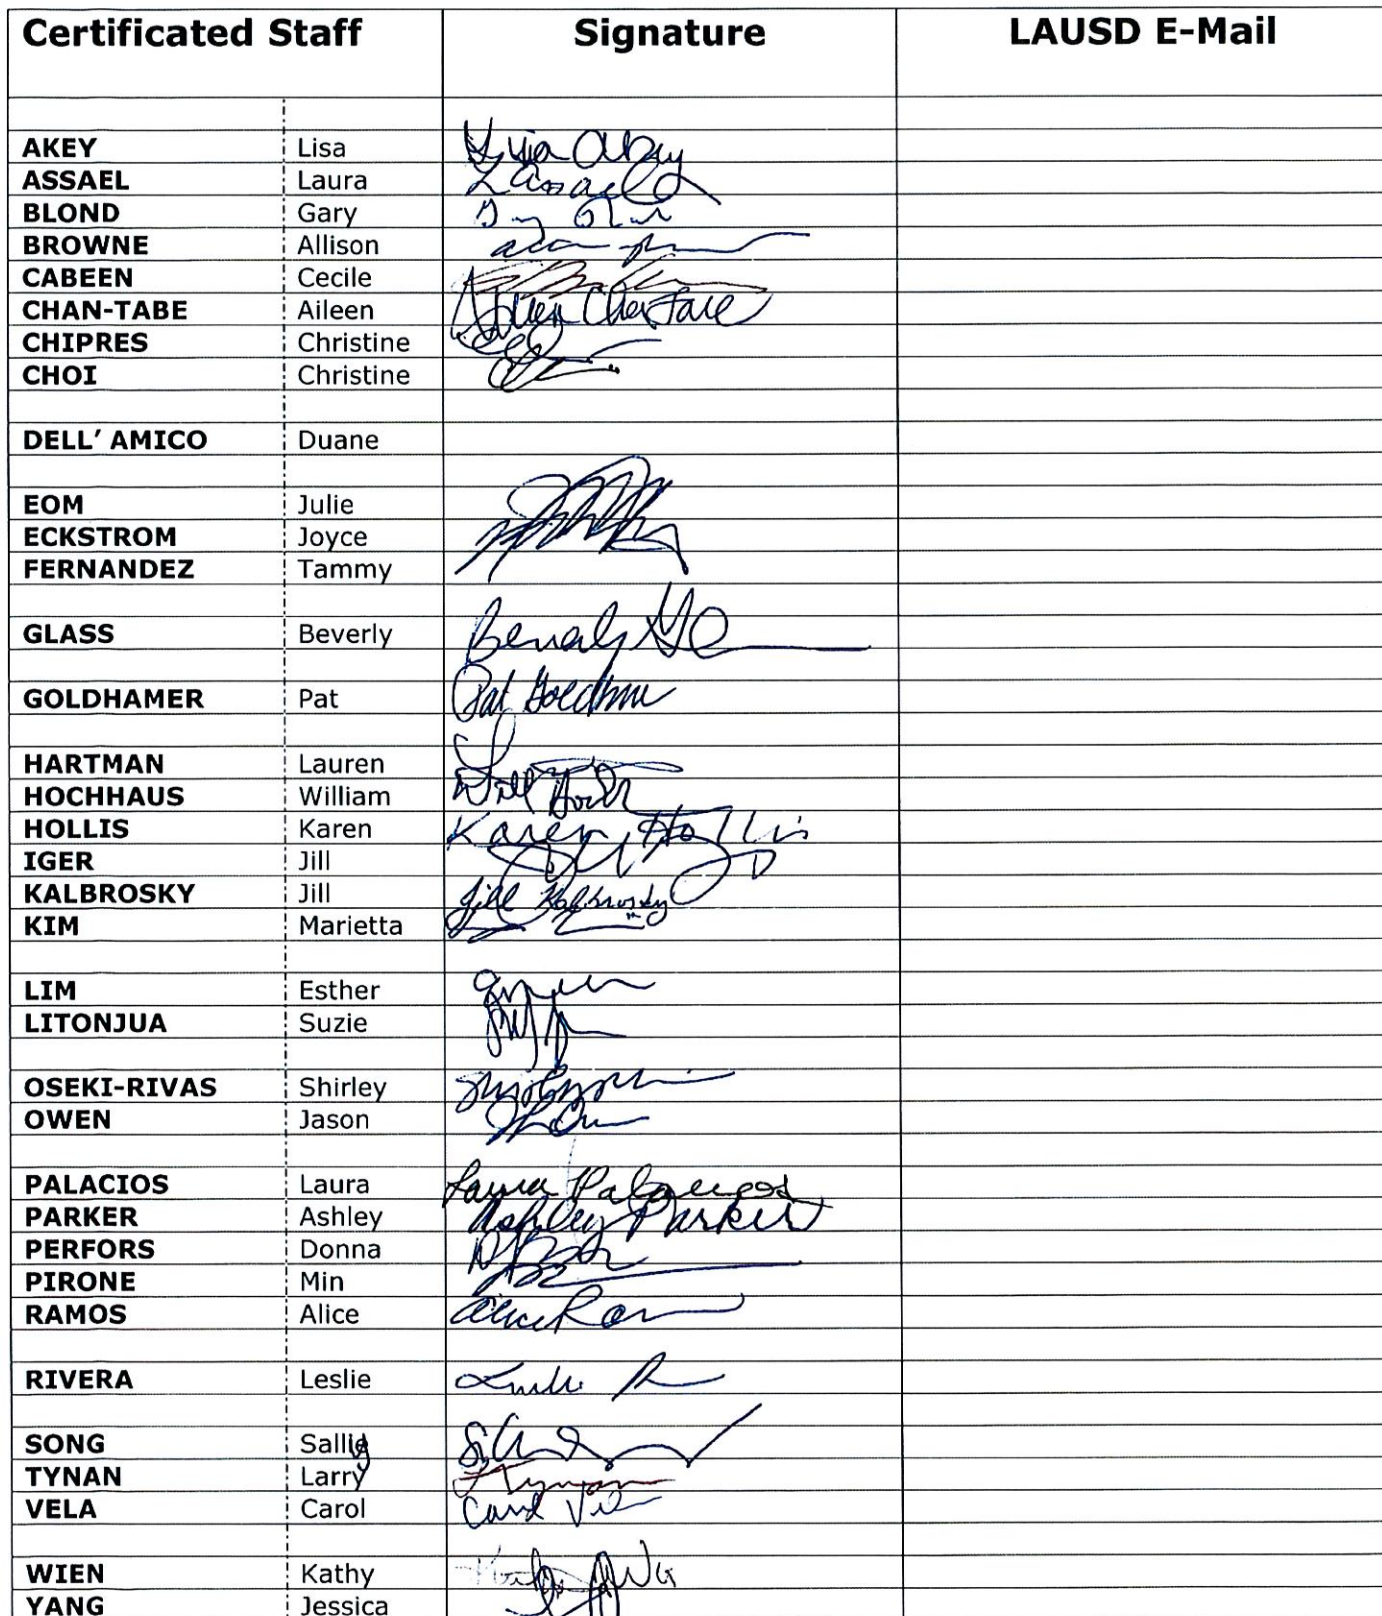 Certificated Staff Signature LAUSD E-Mail
AKEY Lisa Lisa Akey
ASSAEL Laura L Assael
BLOND Gary
BROWNE Allison
CABEEN Cecile
CHAN-TABE Aileen Aileen Chan Tabe
CHIPRES Christine
CHOI Christine
DELL' AMICO Duane
EOM Julie
ECKSTROM Joyce
FERNANDEZ Tammy
GLASS Beverly Beverly
GOLDHAMER Pat Pat
HARTMAN Lauren
HOCHHAUS William Will
HOLLIS Karen Karen Hollis
IGER Jill
KALBROSKY Jill Jill Kalbrosky
KIM Marietta
LIM Esther
LITONJUA Suzie
OSEKI-RIVAS Shirley
OWEN Jason
PALACIOS Laura Laura Palacios
PARKER Ashley Ashley Parker
PERFORS Donna
PIRONE Min
RAMOS Alice Alice
RIVERA Leslie Leslie
SONG Sally
TYNAN Larry Tynan
VELA Carol Carol Vela
WIEN Kathy
YANG Jessica